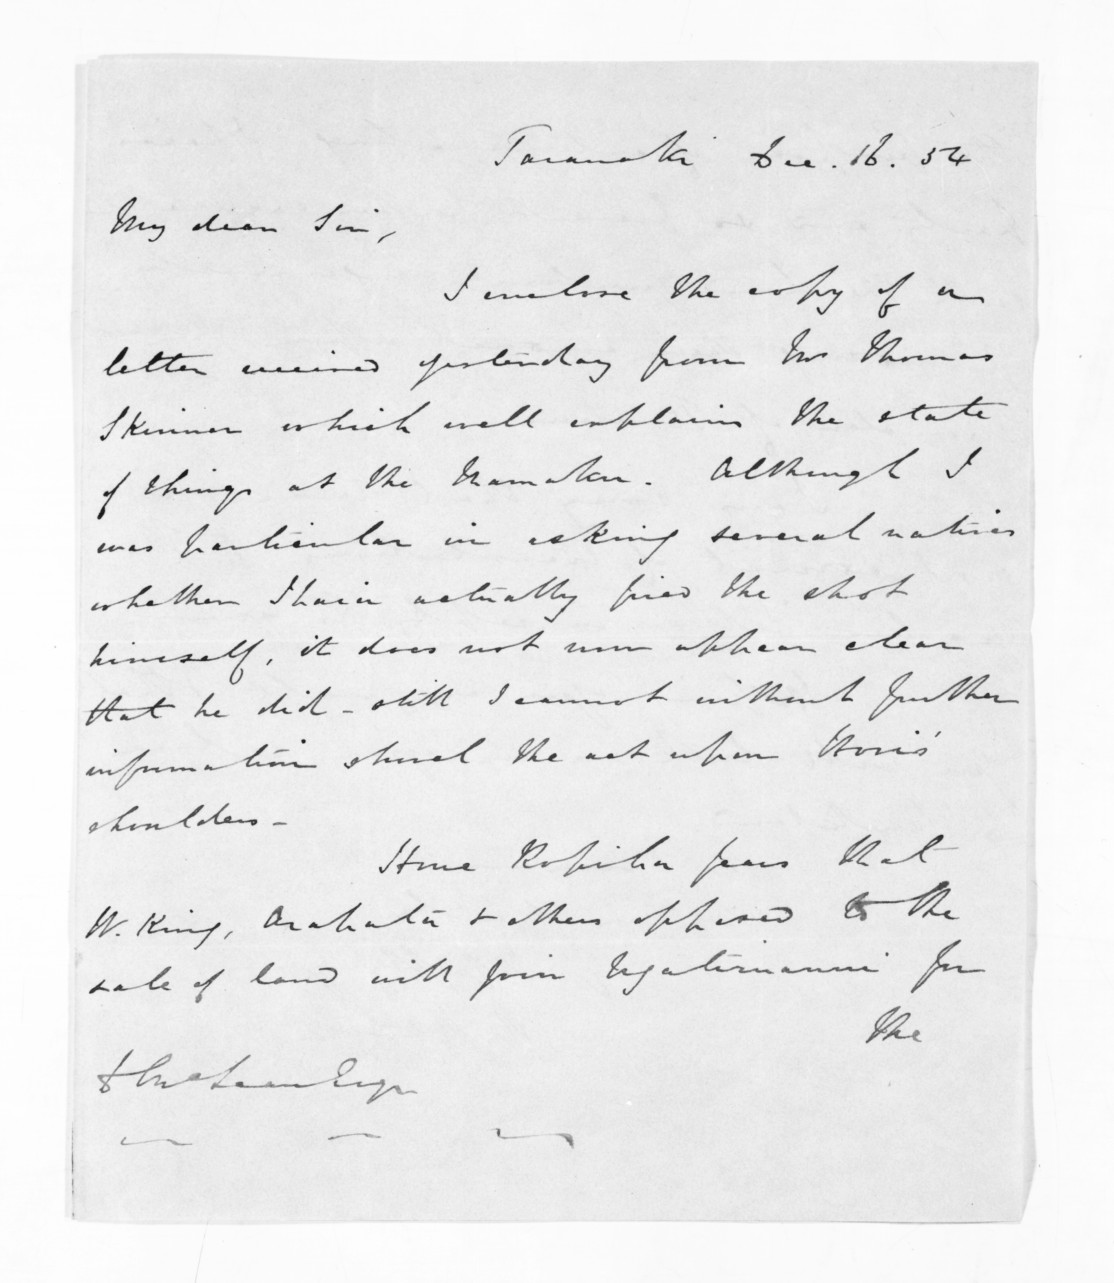 Taranaki Dec. 16. 54
My dear Sir,
I enclose the copy of a
letter received yesterday from Mr Thomas
Skinner which well explains the state
of things at the Hamaku. Although I
was particular in asking several natives
whether Ihaia actually fired the shot
himself, it does not now appear clear
that he did - still I cannot without further
information shovel the act upon Horis'
shoulders -
Hone Ropiha fears that
W. King, Arahata & others opposed to the
sale of land will join Ngatiruanui for
the
D McLean Esqr